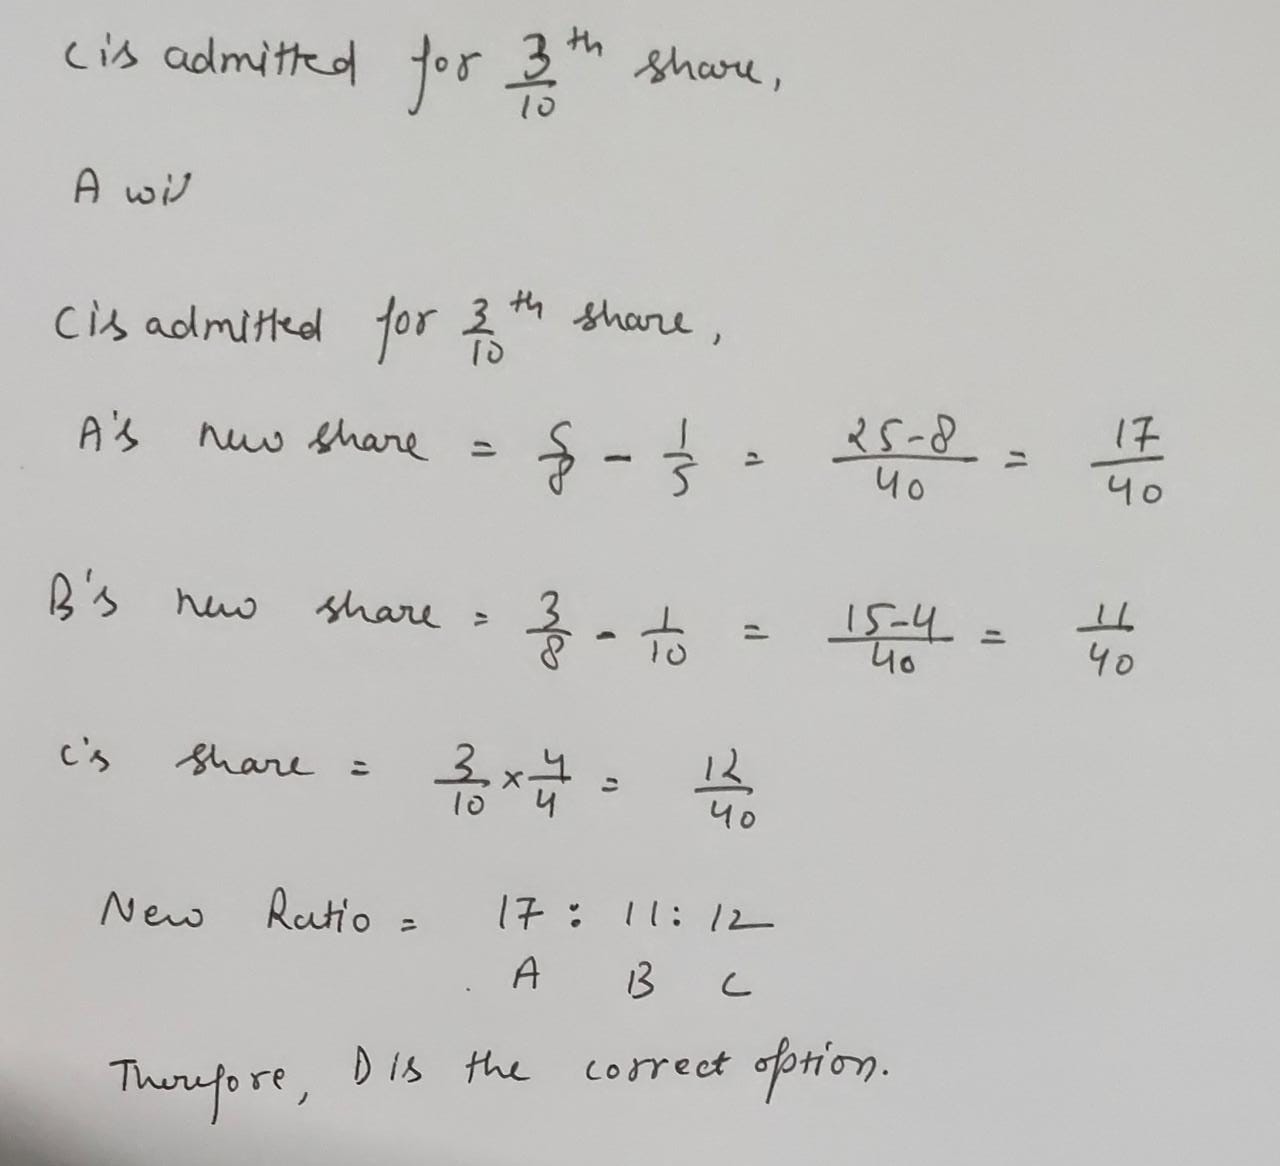 C is admitted for 3/10 th share,
A wil
C is admitted for 3/10 th share,
A's new share = 5/8 - 1/5 = 25-8/40 = 17/40
B's new share = 3/8 - 1/10 = 15-4/40 = 11/40
C's share = 3/10 × 4/4 = 12/40
New Ratio = 17 : 11 : 12
A B C
Therefore, D is the correct option.